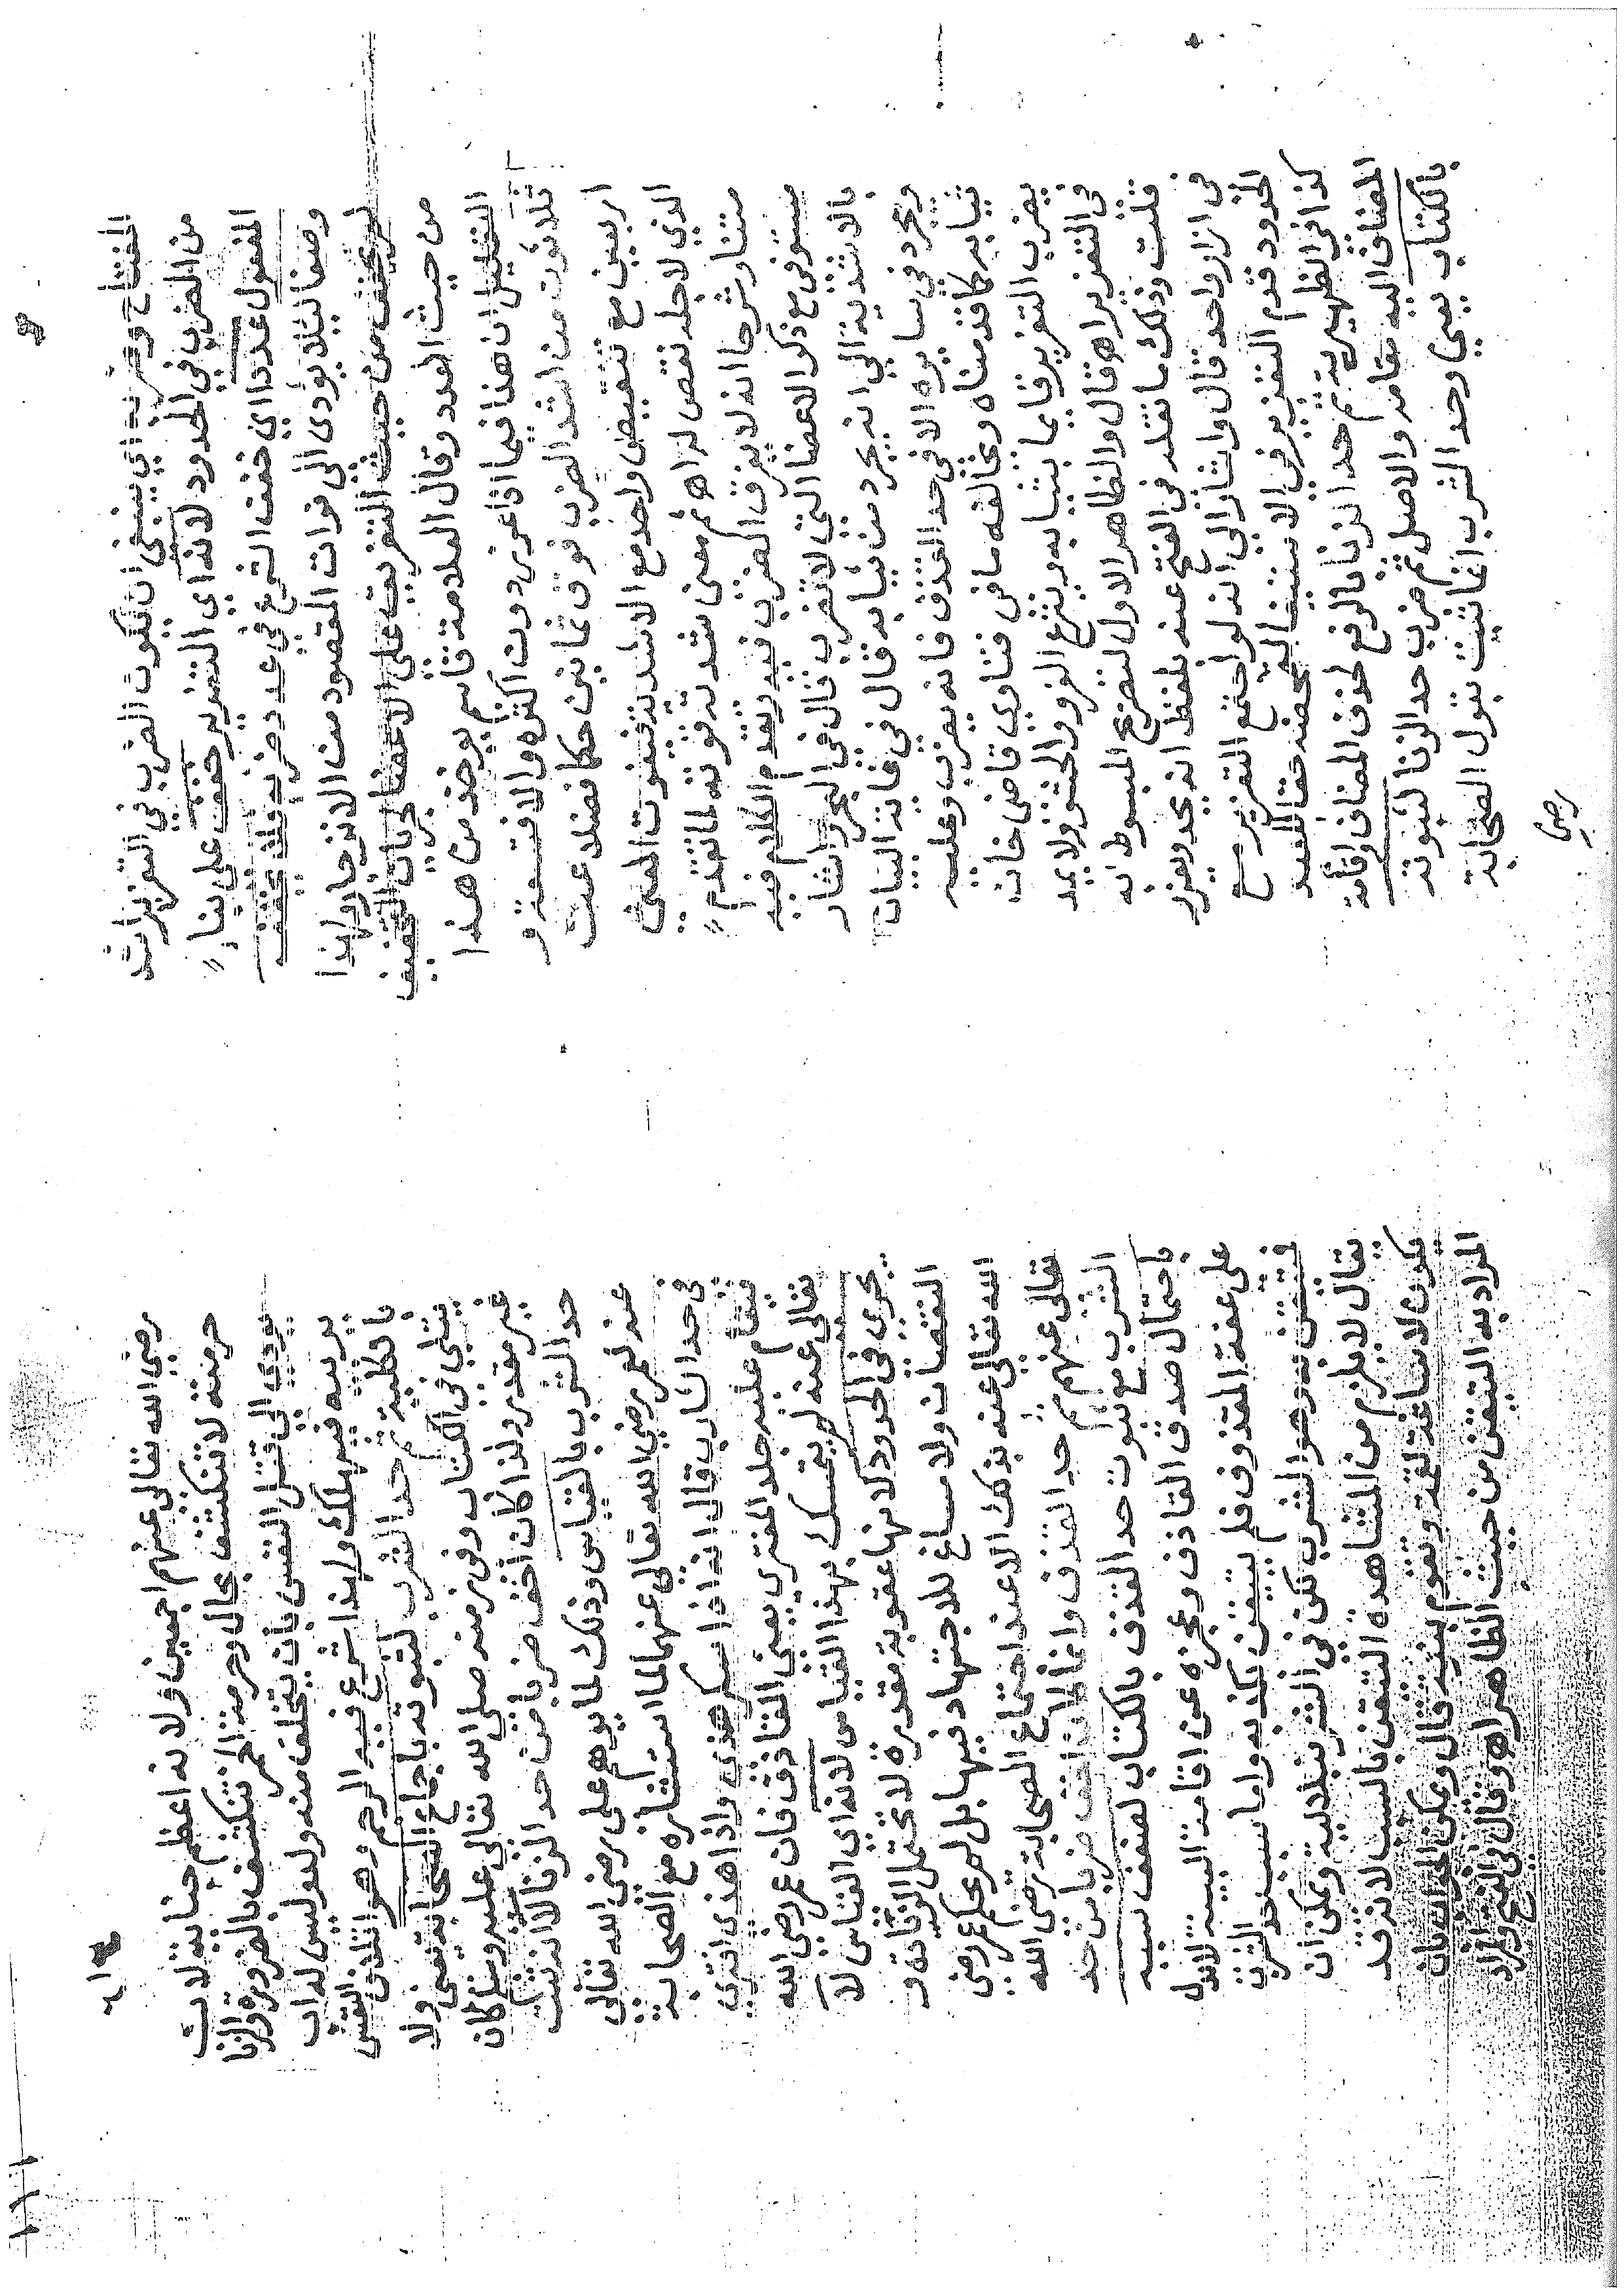 المفتاح وضربه اي ينبغي ان يكون الضرب في التعزير اشد
من الضرب في الحدود لانه اي التعزير خفف على بناء
المفعول عددا اي خفف الشرع في عدد ضربه فلا يخفف
وصفا لئلا يؤدي الى فوات المقصود من الانزجار ولهذا
لم يخفف من حيث التفريق على الاعضاء بان التخفيف
من حيث العدد وقال العلامة قاسم يوخذ من هذا
التعليل ان هذا فيما اذا عزر دون اكثره والا فتسعة و
ثلاثون من اشد الضرب فوق ثمانين حكما فضلا عن
اربعين مع تنقيص واحد مع الاشدية فيفوت المعنى
الذي لاجله نقص اه ثم معنى شدته قوته لما تقدم
متنا وشرحا انه لا يفرق الضرب فيه وتقدم الكلام فيه
مستوفى مع ذكر الاعضا التي لا تضرب قال في البحر واشار
بالاشدية الى انه يجرد من ثيابه قال في غاية البيان
ويجرد في سايره الا في حد القذف فانه يضرب وعليه
ثيابه كما قدمناه ويخالفه ما في فتاوى قاضي خان
يضرب التعزير قايما بثيابه وينزع الفرو والحشو ولا يمد
في التعزير اه قال والظاهر الاول لتصريح المبسوط به
قلت وذلك ما نقله في الفتح عنه بلفظ انه يحد ويعزر
في ازار واحد قال واشار الى انه لو اجتمع التعزير مع
الحدود قدم التعزير في الاستيفا لتمحضه حقا للعبد
كذا في الظهيرية ثم حد الزنا بالرفع لحذف المضاف واقامة
المضاف اليه مقامه والاصل ثم ضرب حد الزنا لثبوته
بالكتاب يعني وحد الشرب انما ثبت بقول الصحابة
رضي
٦١
رضي الله تعالى عنهم اجمعين ولانه اعظم جناية لان
حرمته لا تنكشف بحال وحرمة الخمر تنكشف بالضرورة والزنا
يودي الى قتل النفس بان يتخلق منه ولد وليس له اب
يربيه فيهلك ولهذا شرع فيه الرجم وهو اتلاف النفس
بالكلية ثم حد الشرب لثبوته باجماع الصحابة يعني ولا
يتلى في الكتاب وفي زمنه صلى الله تعالى عليه وسلم كان
غير مقدر ولذا كان اخف ضربا من حد الزنا لا انه ثبت
حد الشرب بالقياس وذلك لما يوهم على رضي الله تعالى
عنه لعمر رضي الله تعالى عنهما لما استشاره مع الصحابة
في حد الشارب قال انه اذا سكر هذى واذا هذى افترى
فيقام عليه جلد المفتري يعني القاذف فان عمر رضي الله
تعالى عنه لم يتمسك بهذا القياس لانه اي القياس لا
يجرى في الحدود لانها عقوبة مقدرة لا تحتمل الزيادة و
النقصان ولا مساغ للاجتهاد فيها بل لم يحكم عمر رضي
الله تعالى عنه بذلك الا عند اجتماع الصحابة رضي الله
تعالى عنهم ثم حد القذف وانما كان اخف ضربا من حد
الشرب مع ثبوت حد القذف بالكتاب لضعف سببه
باحتمال صدق القاذف وعجزه عن اقامة البينة لا يدل
على عفة المقذوف فلم يتيقن بكذبه واما سبب حد الشرب
فتيقن به وهو الشرب لكن في الشرنبلالية ويمكن ان
يقال لا يلزم من المشاهدة التيقن بالسبب لانه قد
يكون لاساغة لقمة وتقوم بينة قال ويمكن الجواب بان
المراد به التيقن من حيث الظاهر اه وقال في الفتح والمراد